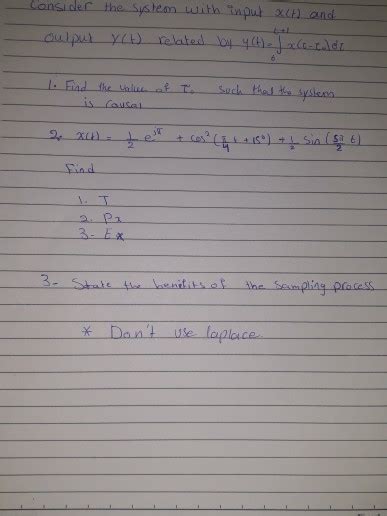 Consider the system with input x(t) and
output y(t) related by y(t) = ∫₀ᵗ⁺¹ x(τ-τ₀)dτ
1. Find the value of T₀ such that the system
is causal
2. x(t) = 1/2 e^jπ + cos²(π/4 t + 15°) + 1/2 sin(5π/2 t)
Find
1. T
2. Px
3- Ex
3- State the benefits of the sampling process
* Don't use laplace